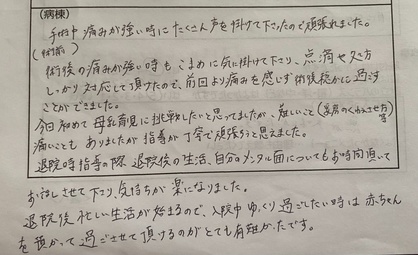 (病棟)
手術中 痛みが強い時に たくさん声を掛けて下さったので頑張れました。
(術前)
術後の痛みが強い時も こまめに気に掛けて下さり、点滴や処方
しっかり対応して頂けたので、前回より痛みを感じず術後穏やかに過ごす
ことができました。
今回初めて母乳育児に挑戦したいと思ってましたが、難しいこと(乳房のくわえさせ方等)
痛いことも ありましたが 指導が丁寧で頑張ろうと思えました。
退院時指導の際 退院後の生活、自分のメンタル面についてもお時間頂いて
お話しさせて下さり、気持ちが楽になりました。
退院後忙しい生活が始まるので、入院中ゆっくり過ごしたい時は 赤ちゃん
を預かって過ごさせて頂けるのがとても有難かったです。